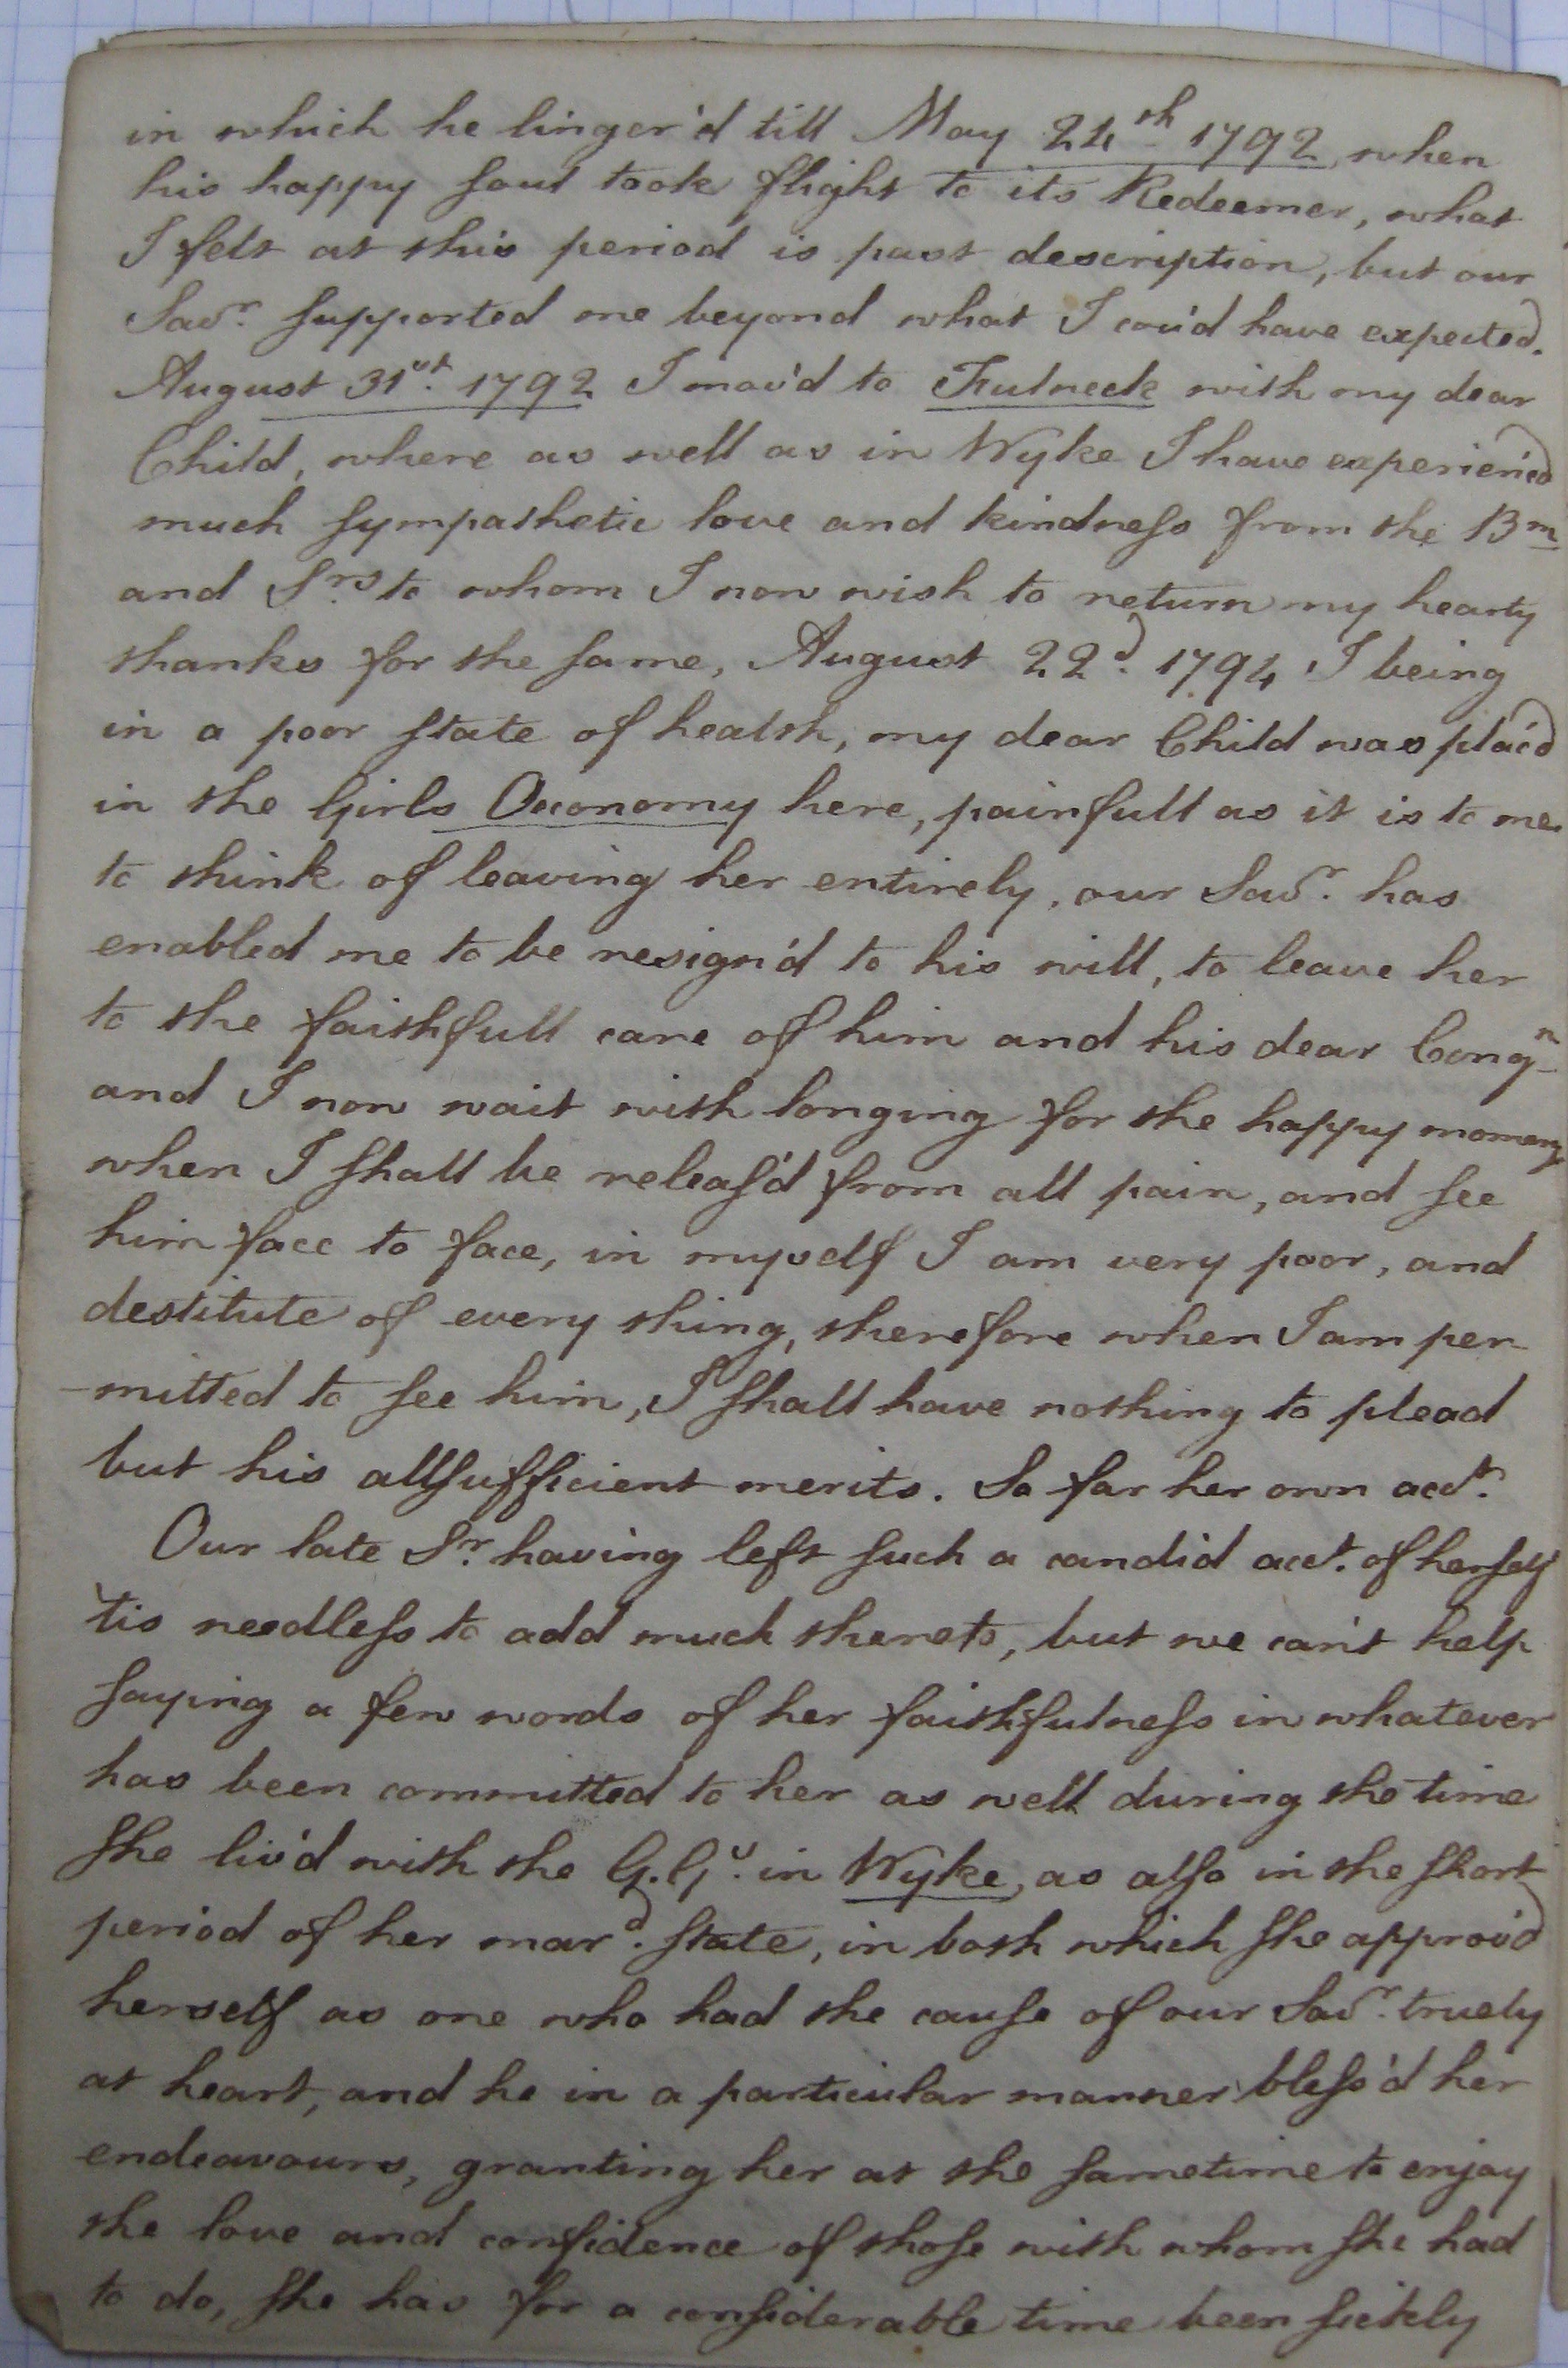 in which he linger'd till May 24th 1792, when
his happy soul took flight to its Redeemer, what
I felt at this period is past description, but our
Savr. supported me beyond what I cou'd have expected.
August 31st. 1792 I mov'd to Fulneck with my dear
Child, where as well as in Wyke I have experienc'd
much sympathetic love and kindness from the Brn
and Srs. to whom I now wish to return my hearty
thanks for the same, August 22d. 1794 I being
in a poor state of health, my dear Child was plac'd
in the Girls Oeconomy here, painfull as it is to me
to think of leaving her entirely, our Savr. has
enabled me to be resign'd to his will, to leave her
to the faithfull care of him and his dear Congn
and I now wait with longing for the happy moment
when I shall be releas'd from all pain, and see
him face to face, in myself I am very poor, and
destitute of every thing, therefore when I am per-
-mitted to see him, I shall have nothing to plead
but his allsufficient merits. So far her own acct.
Our late Sr. having left such a candid acct. of herself
'tis needless to add much thereto, but we can't help
saying a few words of her faithfulness in whatever
has been committed to her as well during the time
she liv'd with the G.Gs. in Wyke, as also in the short
period of her mard. state, in both which she approv'd
herself as one who had the cause of our Savr. truely
at heart, and he in a particular manner bless'd her
endeavours, granting her at the sametime to enjoy
the love and confidence of those with whom she had
to do, she has for a considerable time been sickly